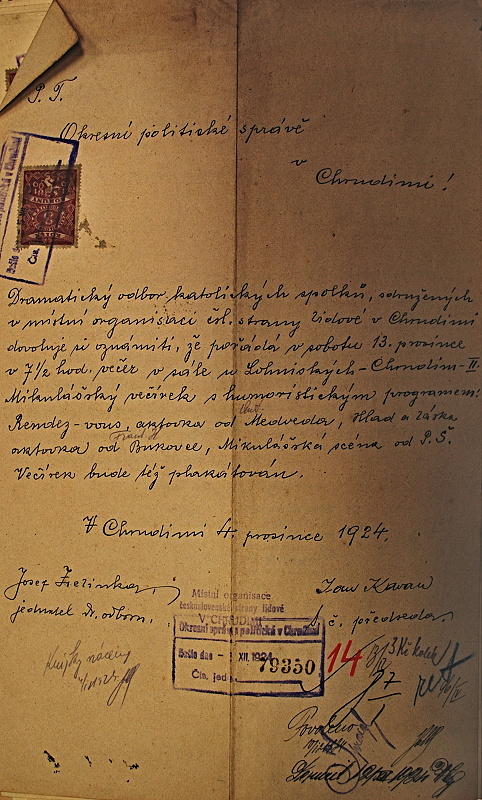 P. T.
Okresní politické správě
v
Chrudimi!
Dramatický odbor katolických spolků, sdružených
v místní organisaci čsl. strany lidové v Chrudimi
dovoluje si oznámiti, že pořádá v sobotu 13. prosince
v 7 1/2 hod. večer v sále u Lohniských - Chrudim - II.
Mikulášský večírek s humoristickým programem:
Rendez-vous, aktovka od Medveda, Hlad a láska
aktovka od Bukovce, Mikulášská scéna od P. Š.
Večírek bude též plakátován.
V Chrudimi 4. prosince 1924.
Josef
jednatel dr. odboru.
Jan Kavan
t. č. předseda.
Místní organisace
československé strany lidové
V CHRUDIMI
Okresní správa politická v Chrudimi
Došlo dne XII. 1924
Čís. jed. 79350
14
3 Kč kolek
7
Povoleno